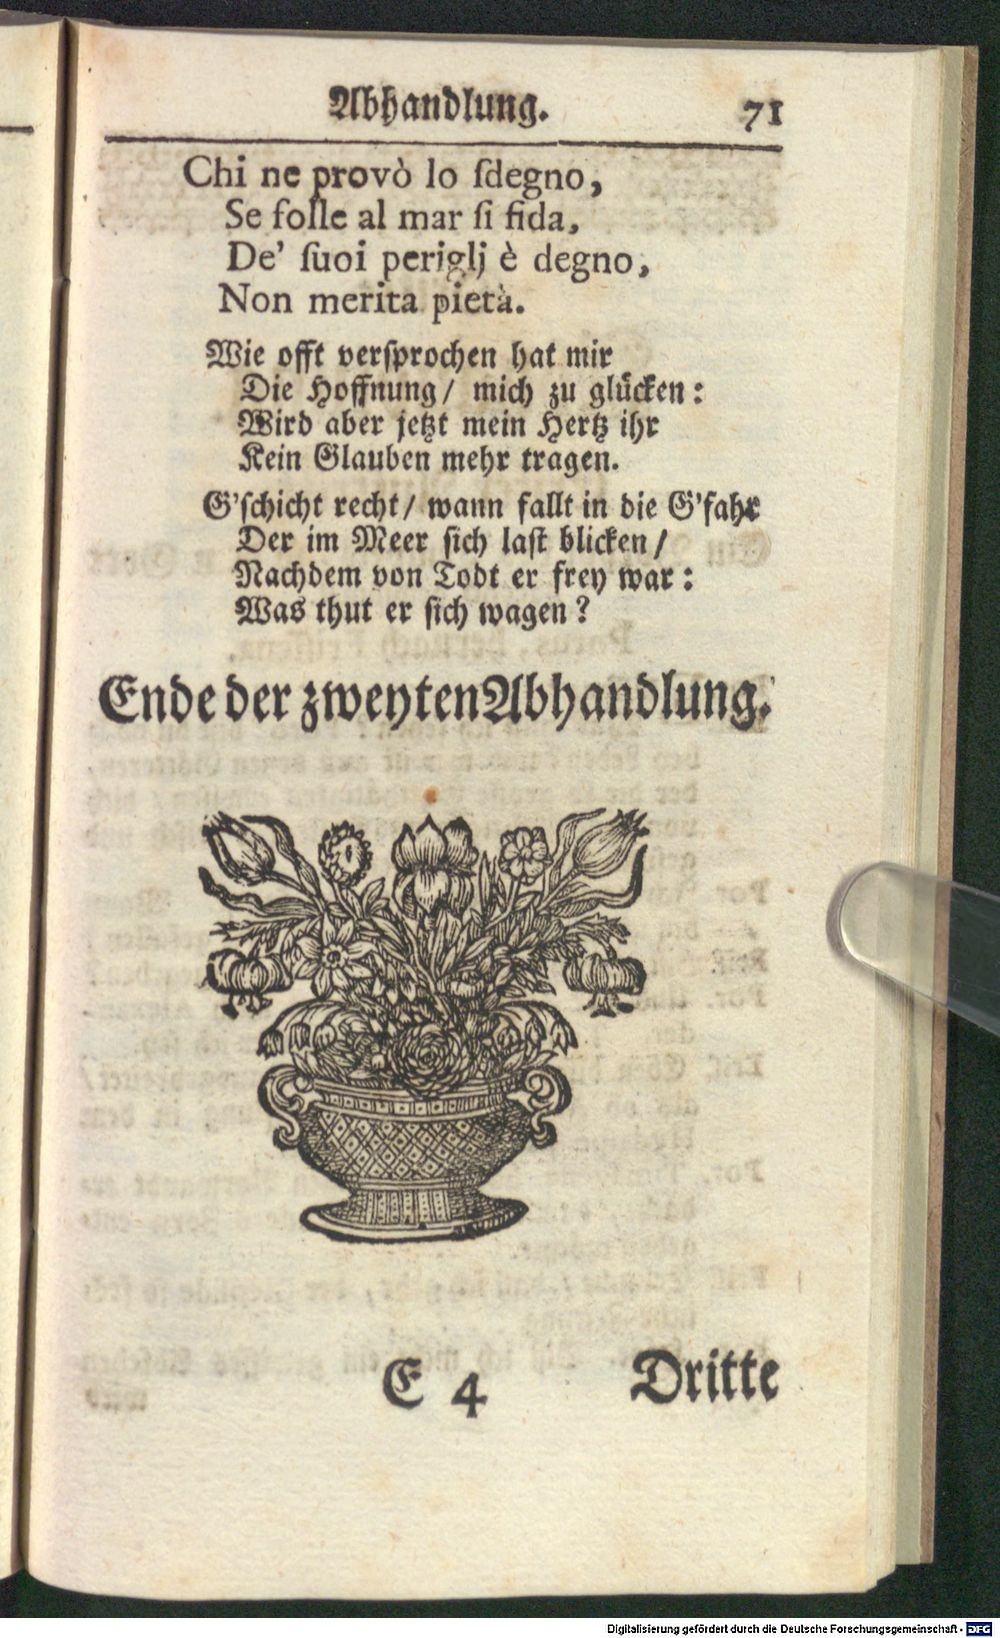 Abhandlung. 71
Chi ne provò lo ſdegno,
Se folle al mar ſi fida,
De' ſuoi periglj è degno,
Non merita pietà.
Wie offt verſprochen hat mir
Die Hoffnung / mich zu glücken:
Wird aber jetzt mein Hertz ihr
Kein Glauben mehr tragen.
G'ſchicht recht / wann fallt in die G'fahr
Der im Meer ſich laſt blicken /
Nachdem von Todt er frey war:
Was thut er ſich wagen?
Ende der zweyten Abhandlung.
E 4 Dritte
Digitalisierung gefördert durch die Deutsche Forschungsgemeinschaft - DFG